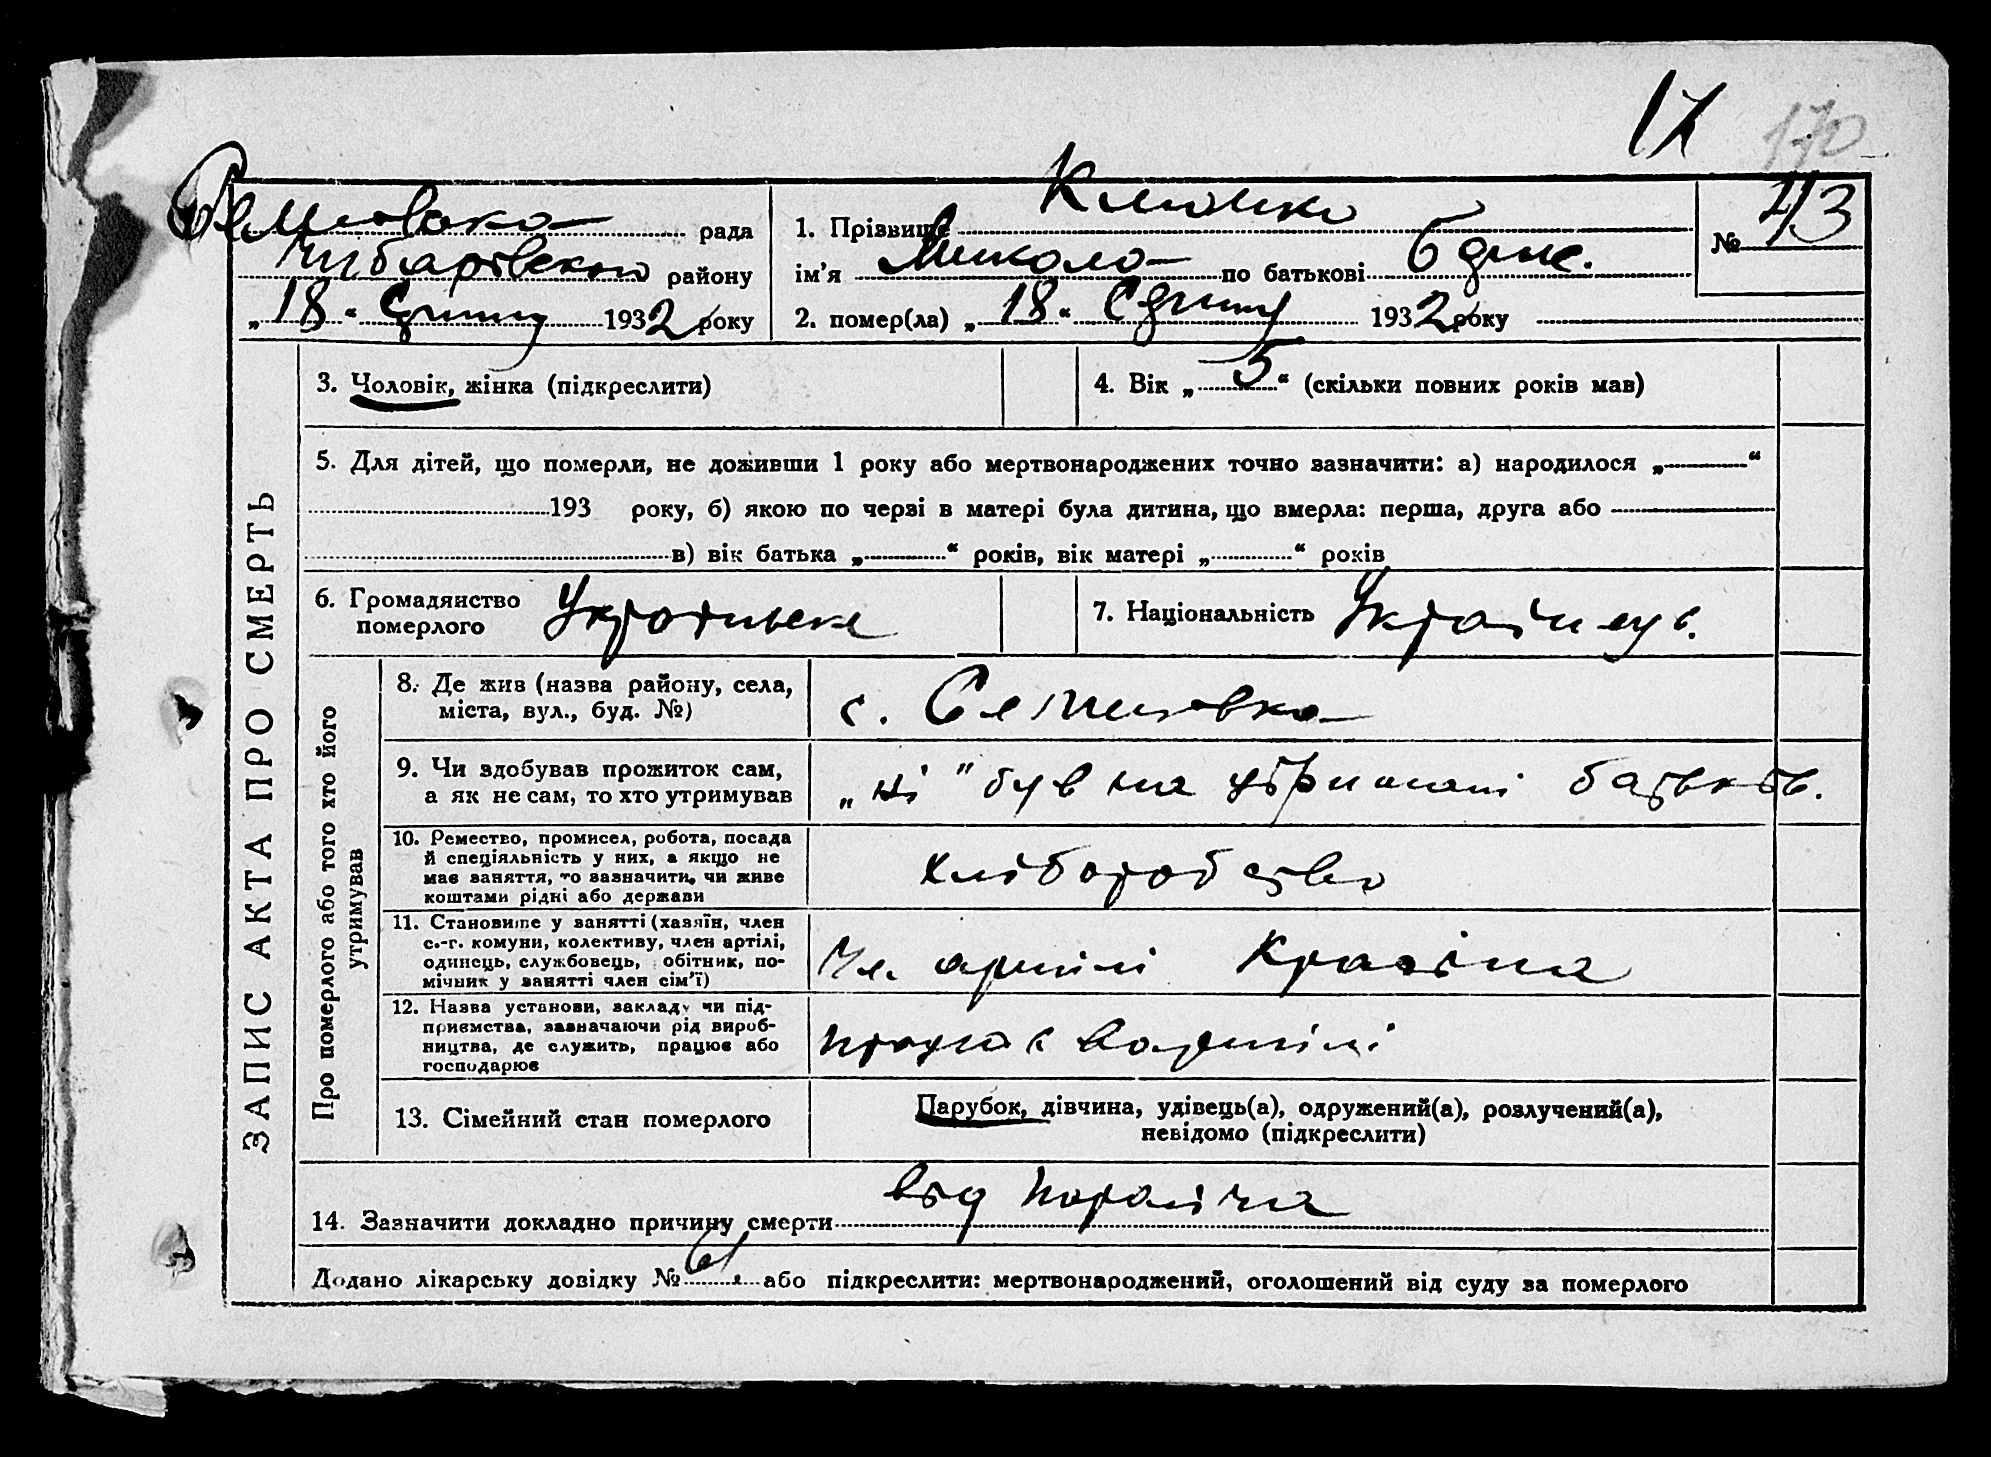 17 170
Семеновка рада
Чубарівского району
„18“ Січня 1932 року
1. Прізвище Климко
ім’я Микола по батькові
2. помер(ла) „18“ Січня 1932 року
№ 43
ЗАПИС АКТА ПРО СМЕРТЬ
3. Чоловік, жінка (підкреслити)
4. Вік „5“ (скільки повних років мав)
5. Для дітей, що померли, не доживши 1 року або мертвонароджених точно зазначити: а) народилося „ “
193 року, б) якою по черзі в матері була дитина, що вмерла: перша, друга або
в) вік батька „ “ років, вік матері „ “ років
6. Громадянство
померлого
Украинске
7. Національність Українец.
Про померлого або того хто його
утримував
8. Де жив (назва району, села,
міста, вул., буд. №)
с. Семеновка
9. Чи здобував прожиток сам,
а як не сам, то хто утримував
„ні” був на утримані батьків.
10. Ремество, промисел, робота, посада
й спеціяльність у них, а якщо не
має заняття, то зазначити, чи живе
коштами рідні або держави
хліборобство
11. Становище у занятті (хазяїн, член
с.-г. комуни, колективу, член артілі,
одинець, службовець, обітник, по-
мічник у занятті член сім’ї)
Чл. артілі
12. Назва установи, закладу чи під-
приємства, зазначаючи рід вироб-
ництва, де служить, працює або
господарює
працює в артілі
13. Сімейний стан померлого
Парубок, дівчина, удівець(а), одружений(а), розлучений(а),
невідомо (підкреслити)
14. Зазначити докладно причину смерти від параліча
Додано лікарську довідку № або підкреслити: мертвонароджений, оголошений від суду за померлого